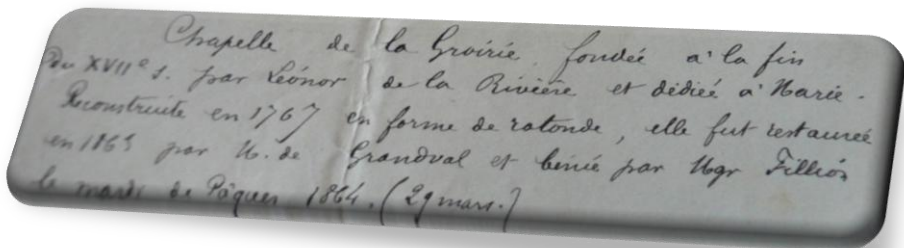 Chapelle de la Groirie fondée à la fin
du XVIIe s. par Léonor de la Rivière et dédiée à Marie.
Reconstruite en 1767 en forme de rotonde, elle fut restaurée
en 1863 par M. de Grandval et bénie par Mgr Fillion
le mardi de Pâques 1864. (29 mars.)